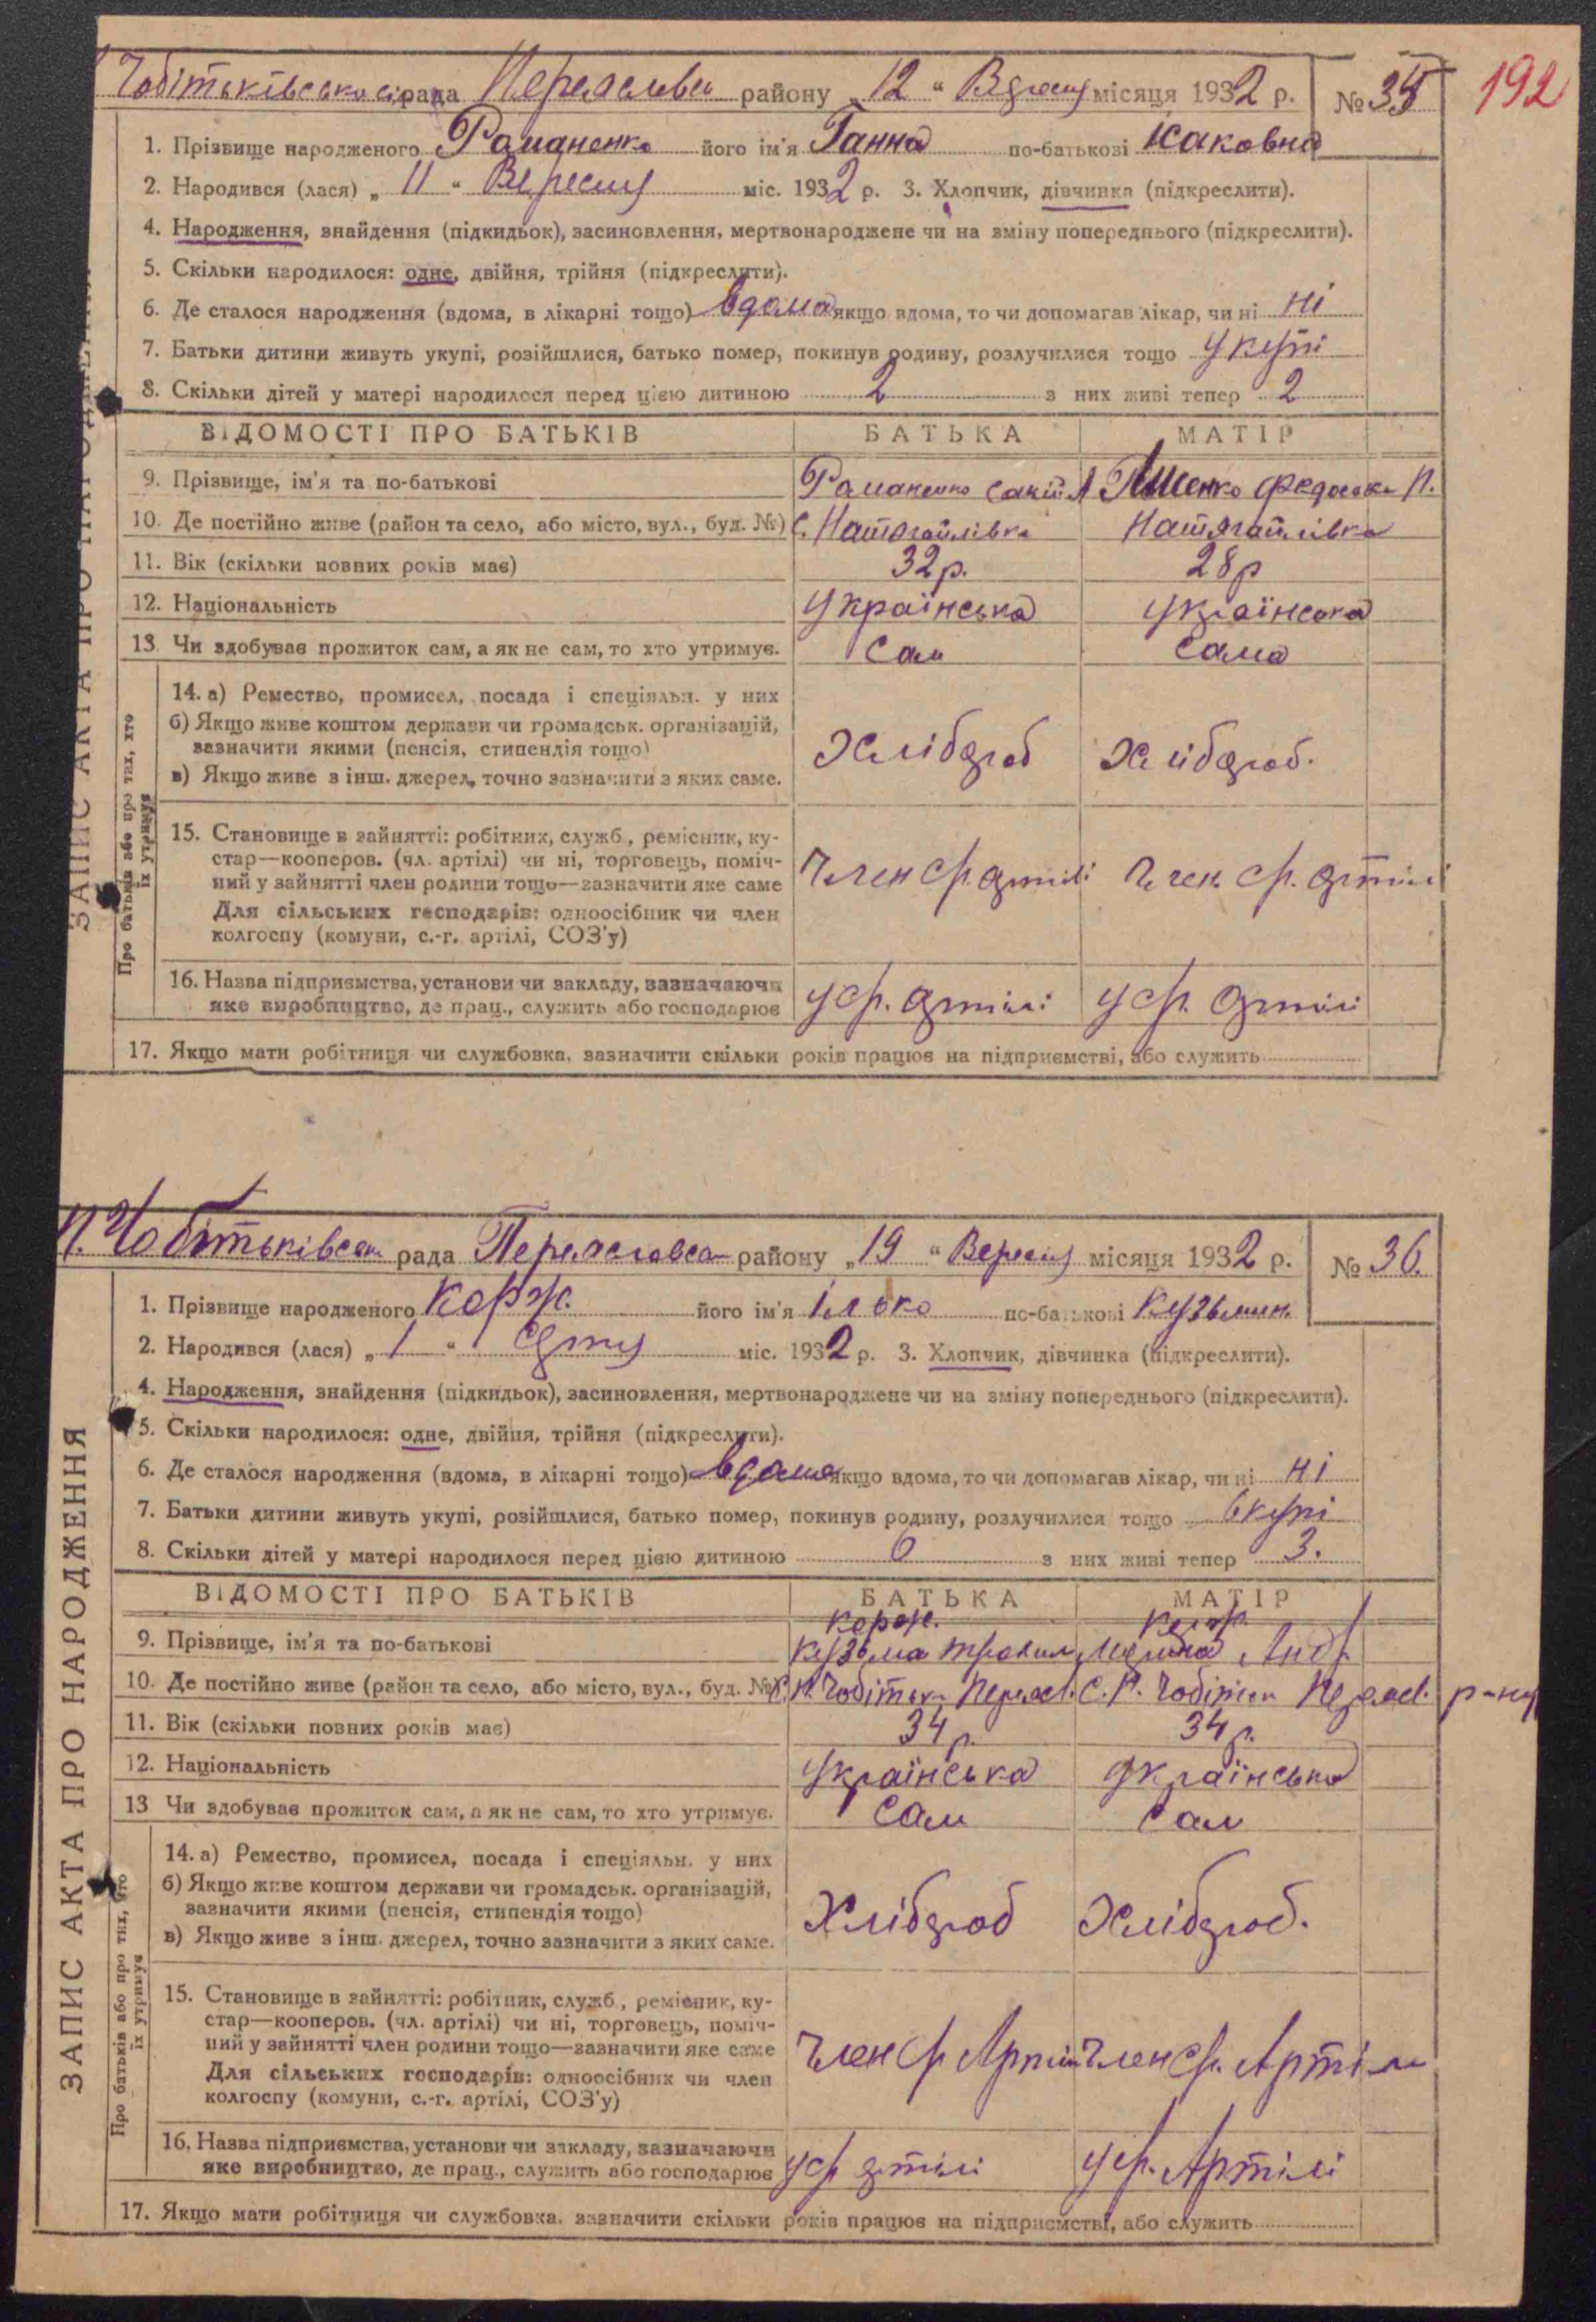 Чобітьківська сільрада Переяславськ району „12“ Вересня місяця 1932 р. № 35 192
1. Прізвище народженого Романенко його ім'я Ганна по-батькові Ісаковна
2. Народився (лася) „11“ Вересня міс. 1932 р. 3. Хлопчик, дівчинка (підкреслити).
4. Народження, знайдення (підкидьок), засиновлення, мертвонароджене чи на зміну попереднього (підкреслити).
5. Скільки народилося: одне, двійня, трійня (підкреслити).
6. Де сталося народження (вдома, в лікарні тощо) вдома якщо вдома, то чи допомагав лікар, чи ні ні
7. Батьки дитини живуть укупі, розійшлися, батько помер, покинув родину, розлучилися тощо укупі
8. Скільки дітей у матері народилося перед цією дитиною 2 з них живі тепер 2
ВІДОМОСТІ ПРО БАТЬКІВ БАТЬКА МАТІР
9. Прізвище, ім'я та по-батькові Романенко П.
10. Де постійно живе (район та село, або місто, вул., буд. №) С. Натягайлівка Натягайлівка
11. Вік (скільки повних років має) 32 р. 28 р
12. Національність Українська українська
13. Чи здобуває прожиток сам, а як не сам, то хто утримує. Сам Сама
ЗАПИС АКТА ПРО НАРОДЖЕННЯ
Про батьків або про тих, хто їх утримує
14. а) Ремество, промисел, посада і спеціяльн. у них
б) Якщо живе коштом держави чи громадськ. організацій,
зазначити якими (пенсія, стипендія тощо)
в) Якщо живе з інш. джерел, точно зазначити з яких саме.
Хлібороб Хлібороб.
15. Становище в зайнятті: робітник, служб., ремісник, ку-
стар—кооперов. (чл. артілі) чи ні, торговець, поміч-
ний у зайнятті член родини тощо—зазначити яке саме
Член ср. артілі Член ср. артілі
Для сільських господарів: одноосібник чи член
колгоспу (комуни, с.-г. артілі, СОЗ'у)
16. Назва підприємства, установи чи закладу, зазначаючи
яке виробництво, де прац., служить або господарює у ср. артілі у ср. артілі
17. Якщо мати робітниця чи службовка, зазначити скільки років працює на підприємстві, або служить
П. Чобітьківськ рада Переяславськ району „19“ Вересня місяця 1932 р. № 36.
1. Прізвище народженого Корж. його ім'я Ілько по-батькові Кузьмин.
2. Народився (лася) „1“ міс. 1932 р. 3. Хлопчик, дівчинка (підкреслити).
4. Народження, знайдення (підкидьок), засиновлення, мертвонароджене чи на зміну попереднього (підкреслити).
5. Скільки народилося: одне, двійня, трійня (підкреслити).
6. Де сталося народження (вдома, в лікарні тощо) вдома якщо вдома, то чи допомагав лікар, чи ні ні
7. Батьки дитини живуть укупі, розійшлися, батько помер, покинув родину, розлучилися тощо вкупі
8. Скільки дітей у матері народилося перед цією дитиною 6 з них живі тепер 3.
ВІДОМОСТІ ПРО БАТЬКІВ БАТЬКА МАТІР
Корж. Корж.
9. Прізвище, ім'я та по-батькові Кузьма Трохим Андр.
10. Де постійно живе (район та село, або місто, вул., буд. №) С. П. Чобітьки Переясл. С. П. Чобітьки Переясл. р-ну
11. Вік (скільки повних років має) 34 р. 34 р.
12. Національність Українська українська
13 Чи здобуває прожиток сам, а як не сам, то хто утримує. Сам Сам
ЗАПИС АКТА ПРО НАРОДЖЕННЯ
Про батьків або про тих, хто їх утримує
14. а) Ремество, промисел, посада і спеціяльн. у них
б) Якщо живе коштом держави чи громадськ. організацій,
зазначити якими (пенсія, стипендія тощо)
в) Якщо живе з інш. джерел, точно зазначити з яких саме.
Хлібороб Хлібороб.
15. Становище в зайнятті: робітник, служб., ремісник, ку-
стар—кооперов. (чл. артілі) чи ні, торговець, поміч-
ний у зайнятті член родини тощо—зазначити яке саме
Член ср Артілі Член ср. Артілі
Для сільських господарів: одноосібник чи член
колгоспу (комуни, с.-г. артілі, СОЗ'у)
16. Назва підприємства, установи чи закладу, зазначаючи
яке виробництво, де прац., служить або господарює у ср артілі у ср. Артілі
17. Якщо мати робітниця чи службовка, зазначити скільки років працює на підприємстві, або служить